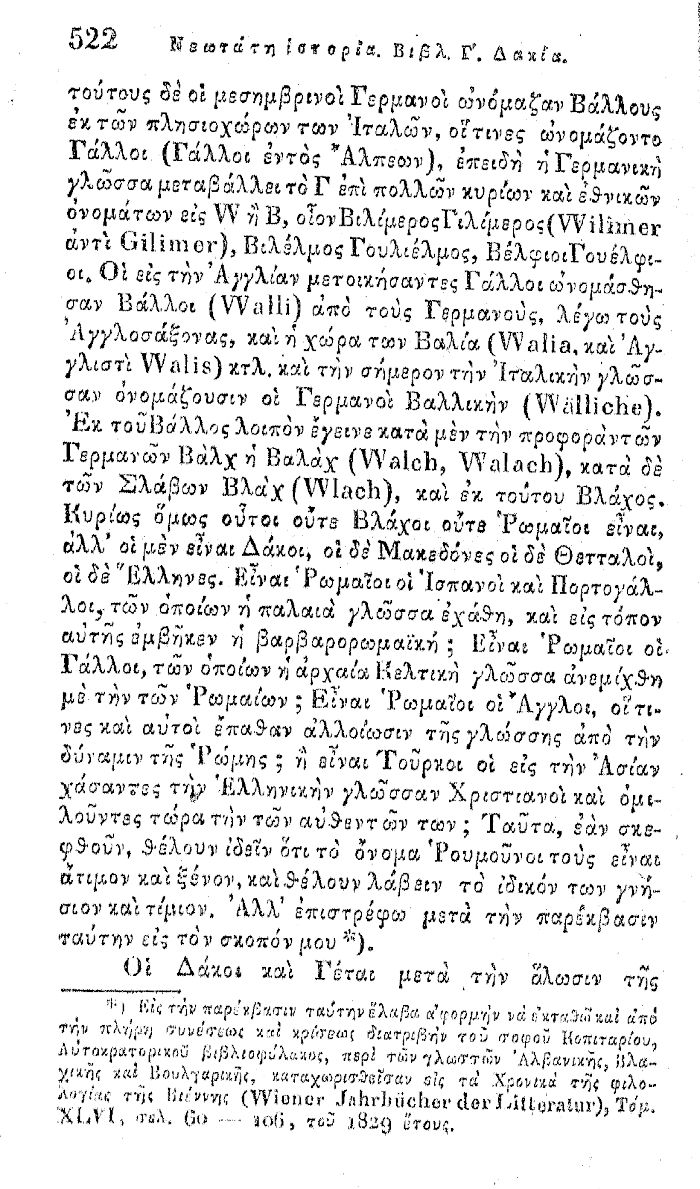 522 Νεωτάτη ἱστορία. Βιβλ. Γ΄. Δακία.
τούτους δὲ οἱ μεσημβρινοὶ Γερμανοὶ ὠνόμαζαν Βάλλους
ἐκ τῶν πλησιοχώρων των Ἰταλῶν, οἵτινες ὠνομάζοντο
Γάλλοι (Γάλλοι ἐντὸς Ἄλπεων), ἐπειδὴ ἡ Γερμανικὴ
γλῶσσα μεταβάλλει τὸ Γ ἐπὶ πολλῶν κυρίων καὶ ἐθνικῶν
ὀνομάτων εἰς W ἢ Β, οἷον Βιλίμερος Γιλίμερος (Wilimer
ἀντὶ Gilimer), Βιλέλμος Γουλιέλμος, Βέλφιοι Γουέλφι-
οι. Οἱ εἰς τὴν Ἀγγλίαν μετοικήσαντες Γάλλοι ὠνομάσθη-
σαν Βάλλοι (Walli) ἀπὸ τοὺς Γερμανοὺς, λέγω τοὺς
Ἀγγλοσάξονας, καὶ ἡ χώρα των Βαλία (Walia, καὶ Ἀγ-
γλιστὶ Walis) κτλ. καὶ τὴν σήμερον τὴν Ἰταλικὴν γλῶσ-
σαν ὀνομάζουσιν οἱ Γερμανοὶ Βαλλικὴν (Wälliche).
Ἐκ τοῦ Βάλλος λοιπὸν ἔγεινε κατὰ μὲν τὴν προφορὰν τῶν
Γερμανῶν Βὰλχ ἢ Βαλὰχ (Walch, Walach), κατὰ δὲ
τῶν Σλάβων Βλὰχ (Wlach), καὶ ἐκ τούτου Βλάχος.
Κυρίως ὅμως οὗτοι οὔτε Βλάχοι οὔτε Ῥωμαῖοι εἶναι,
ἀλλ' οἱ μὲν εἶναι Δάκοι, οἱ δὲ Μακεδόνες οἱ δὲ Θετταλοὶ,
οἱ δὲ Ἕλληνες. Εἶναι Ῥωμαῖοι οἱ Ἱσπανοὶ καὶ Πορτογάλ-
λοι, τῶν ὁποίων ἡ παλαιὰ γλῶσσα ἐχάθη, καὶ εἰς τόπον
αὐτῆς ἐμβῆκεν ἡ βαρβαρορωμαϊκή; Εἶναι Ῥωμαῖοι οἱ
Γάλλοι, τῶν ὁποίων ἡ ἀρχαία Κελτικὴ γλῶσσα ἀνεμίχθη
μὲ τὴν τῶν Ῥωμαίων; Εἶναι Ῥωμαῖοι οἱ Ἄγγλοι, οἵτι-
νες καὶ αὐτοὶ ἔπαθαν ἀλλοίωσιν τῆς γλώσσης ἀπὸ τὴν
δύναμιν τῆς Ῥώμης; ἢ εἶναι Τοῦρκοι οἱ εἰς τὴν Ἀσίαν
χάσαντες τὴν Ἑλληνικὴν γλῶσσαν Χριστιανοὶ καὶ ὁμι-
λοῦντες τώρα τὴν τῶν αὐθεντῶν των; Ταῦτα, ἐὰν σκε-
φθοῦν, θέλουν ἰδεῖν ὅτι τὸ ὄνομα Ῥουμοῦνοι τοὺς εἶναι
ἄτιμον καὶ ξένον, καὶ θέλουν λάβειν τὸ ἰδικόν των γνή-
σιον καὶ τίμιον. Ἀλλ' ἐπιστρέφω μετὰ τὴν παρέκβασιν
ταύτην εἰς τὸν σκοπόν μου *).
Οἱ Δάκοι καὶ Γέται μετὰ τὴν ἅλωσιν τῆς
*) Εἰς τὴν παρέκβασιν ταύτην ἔλαβα ἀφορμὴν νὰ ἐκταθῶ καὶ ἀπὸ
τὴν πλήρη συνέσεως καὶ κρίσεως διατριβὴν τοῦ σοφοῦ Κοπιταρίου,
Αὐτοκρατορικοῦ βιβλιοφύλακος, περὶ τῶν γλωσσῶν Ἀλβανικῆς, Βλα-
χικῆς καὶ Βουλγαρικῆς, καταχωρισθεῖσαν εἰς τὰ Χρονικὰ τῆς φιλο-
λογίας τῆς Βιέννης (Wiener Jahrbücher der Litteratur), Τόμ.
XLVI, σελ. 60 — 106, τοῦ 1829 ἔτους.